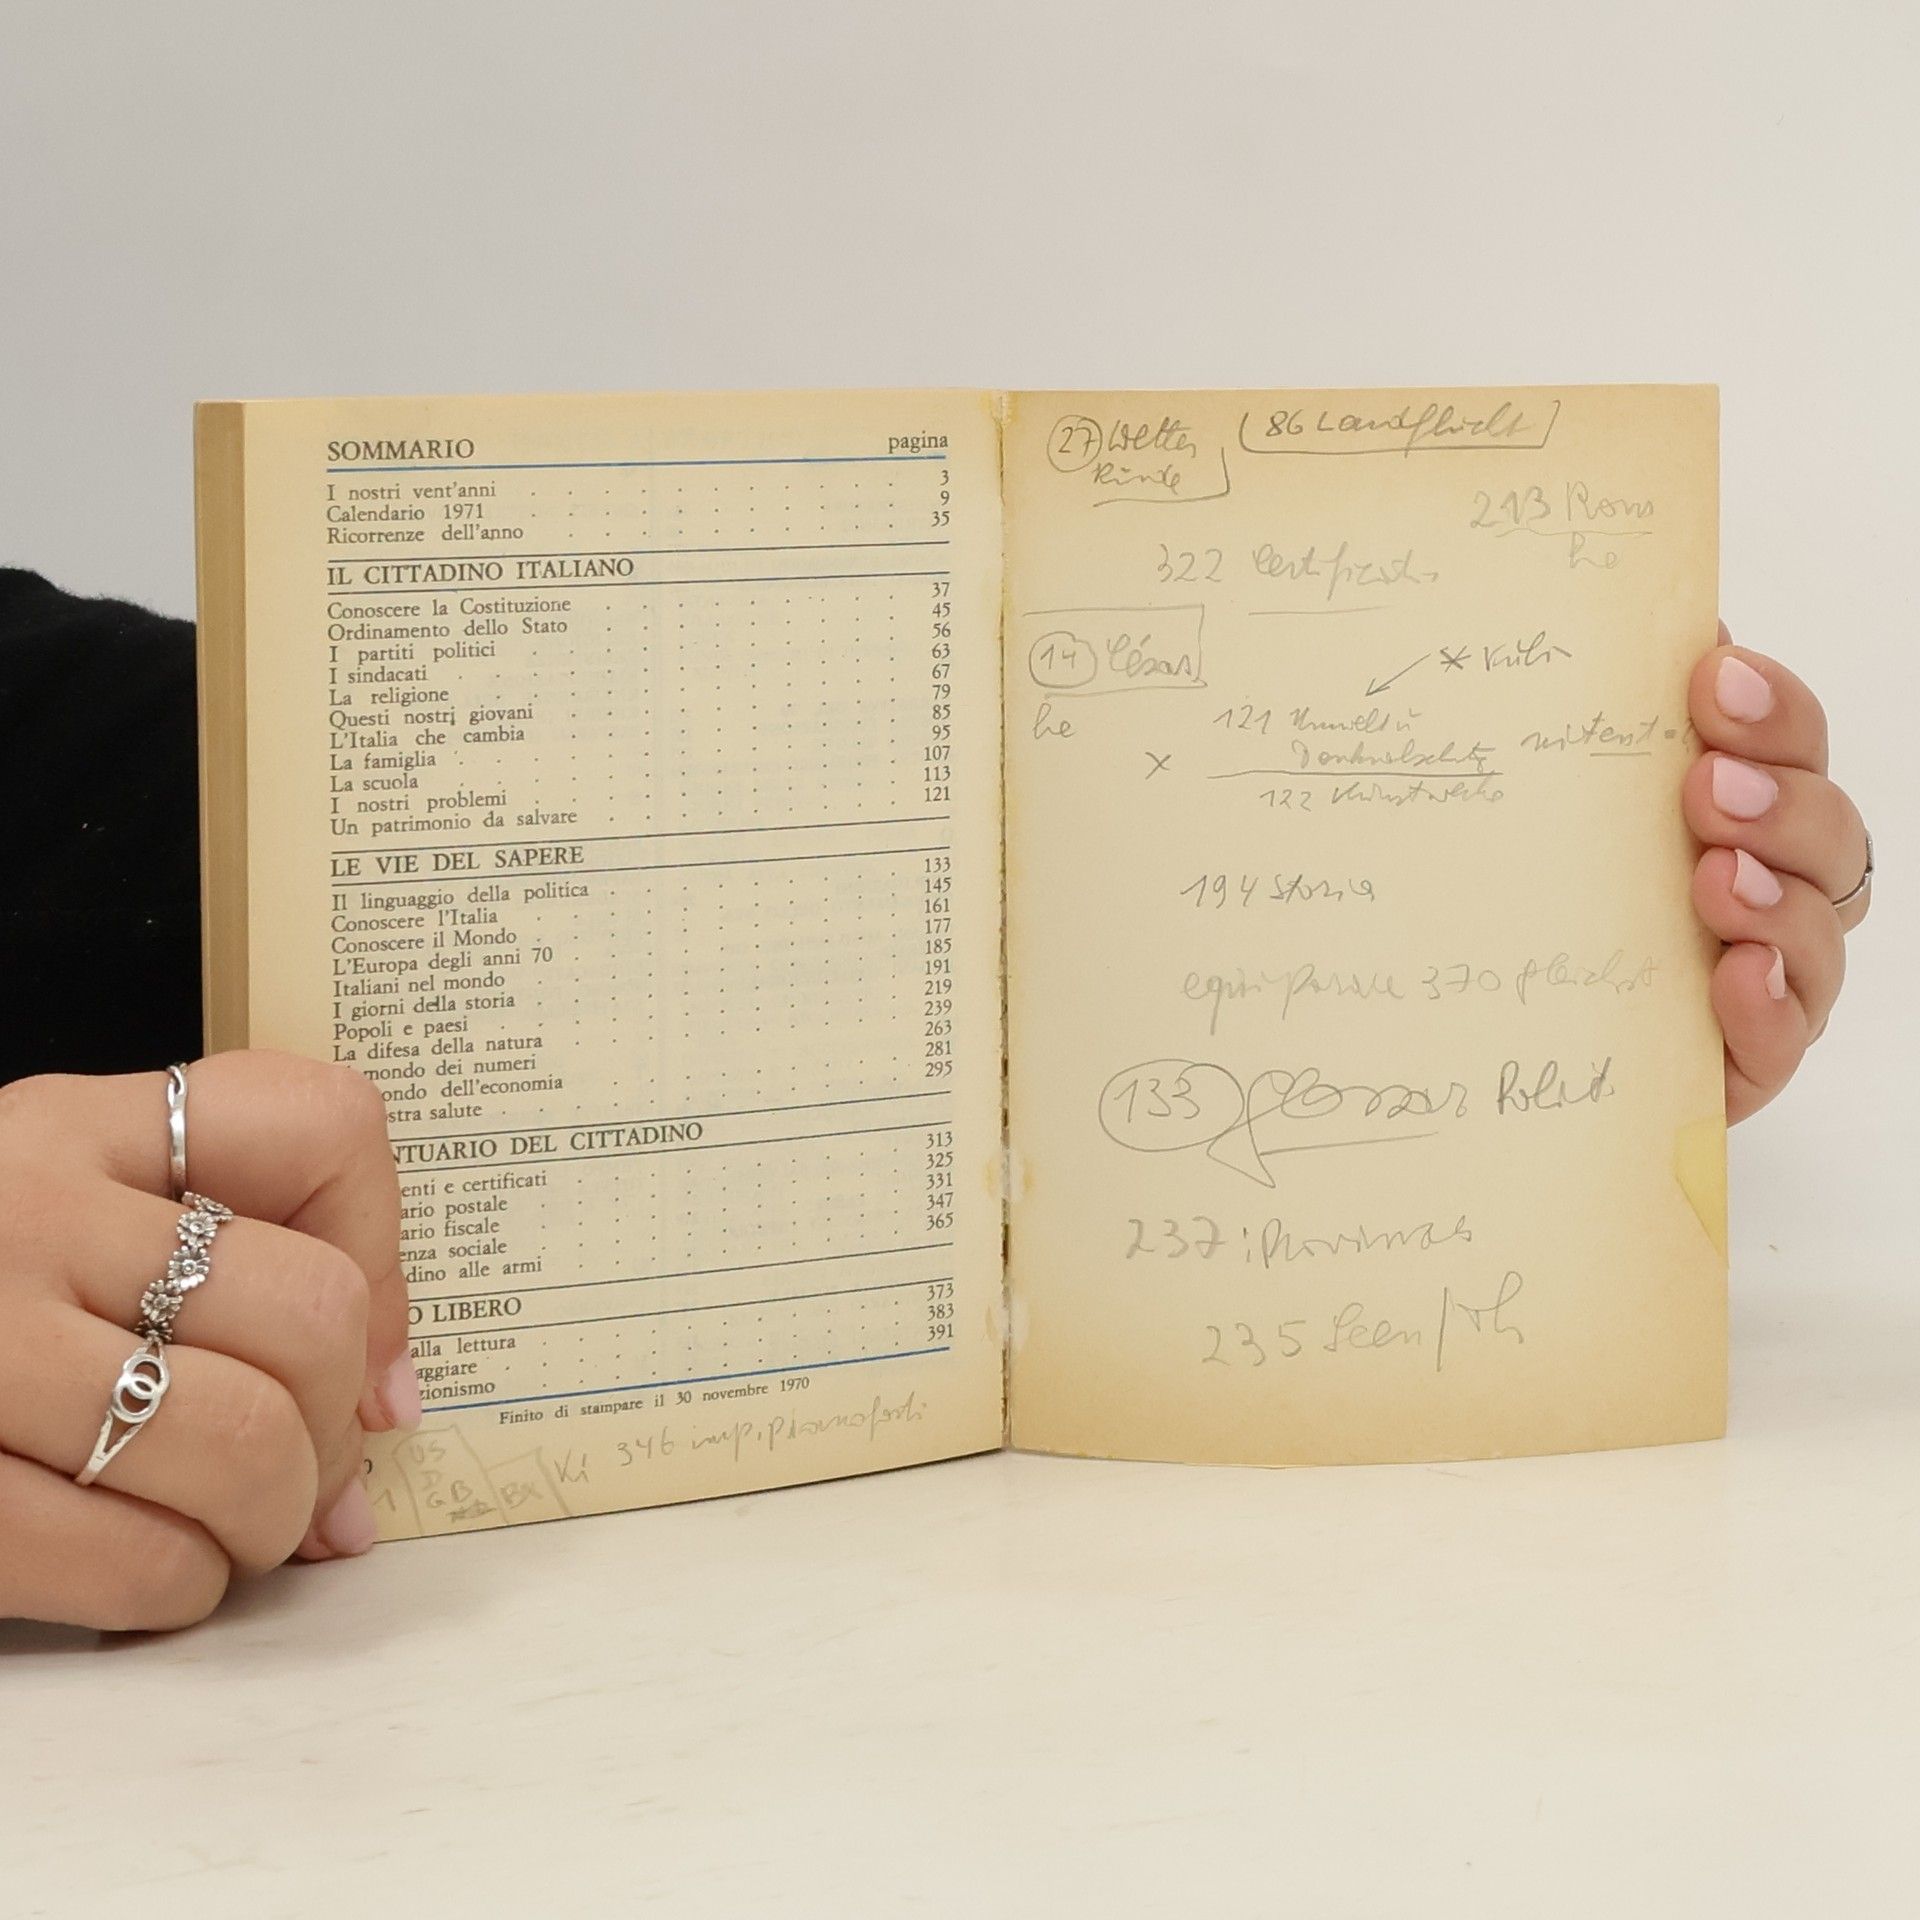 SOMMARIO pagina
I nostri vent'anni 3
Calendario 1971 9
Ricorrenze dell'anno 35
IL CITTADINO ITALIANO
Conoscere la Costituzione 37
Ordinamento dello Stato 45
I partiti politici 56
I sindacati 63
La religione 67
Questi nostri giovani 79
L'Italia che cambia 85
La famiglia 95
La scuola 107
I nostri problemi 113
Un patrimonio da salvare 121
LE VIE DEL SAPERE
Il linguaggio della politica 133
Conoscere l'Italia 145
Conoscere il Mondo 161
L'Europa degli anni 70 177
Italiani nel mondo 185
I giorni della storia 191
Popoli e paesi 219
La difesa della natura 239
mondo dei numeri 263
ondo dell'economia 281
stra salute 295
NTUARIO DEL CITTADINO
enti e certificati 313
ario postale 325
ario fiscale 331
enza sociale 347
dino alle armi 365
O LIBERO
alla lettura 373
aggiare 383
zionismo 391
Finito di stampare il 30 novembre 1970
Ki 346 imp. pianoforti
US
D
GB
1 BX
27 Wetter 86 Landflucht
213 Rom
322 Certificati
14 César
121 Umwelt u
Denkmalschutz
122 Kunstwerke
194 storia
equiparare 370
133 Glossar Polit
237
235 Seen